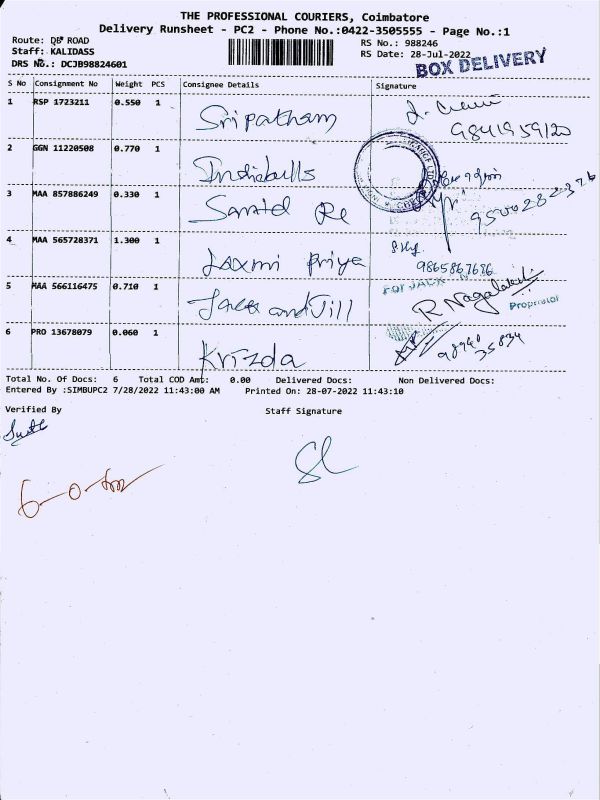 THE PROFESSIONAL COURIERS, Coimbatore
Delivery Runsheet - PC2 - Phone No.:0422-3505555 - Page No.:1
Route: DB ROAD
RS No.: 988246
Staff: KALIDASS
RS Date: 28-Jul-2022
DRS No.: DCJB98824601
BOX DELIVERY
S No Consignment No Weight PCS Consignee Details Signature
1 RSP 1723211 0.550 1 Sripatham
9841959120
2 GGN 11220508 0.770 1 Indiabulls
3 MAA 857886249 0.330 1
4 MAA 565728371 1.300 1 Laxmi Priya
9865867686
5 MAA 566116475 0.710 1 Jack and Jill
FOR JACK
R Nagalakshmi
Proprietor
6 PRO 13678079 0.060 1 Krizda
98940 35834
Total No. Of Docs: 6 Total COD Amt: 0.00 Delivered Docs: Non Delivered Docs:
Entered By :SIMBUPC2 7/28/2022 11:43:00 AM Printed On: 28-07-2022 11:43:10
Verified By Staff Signature